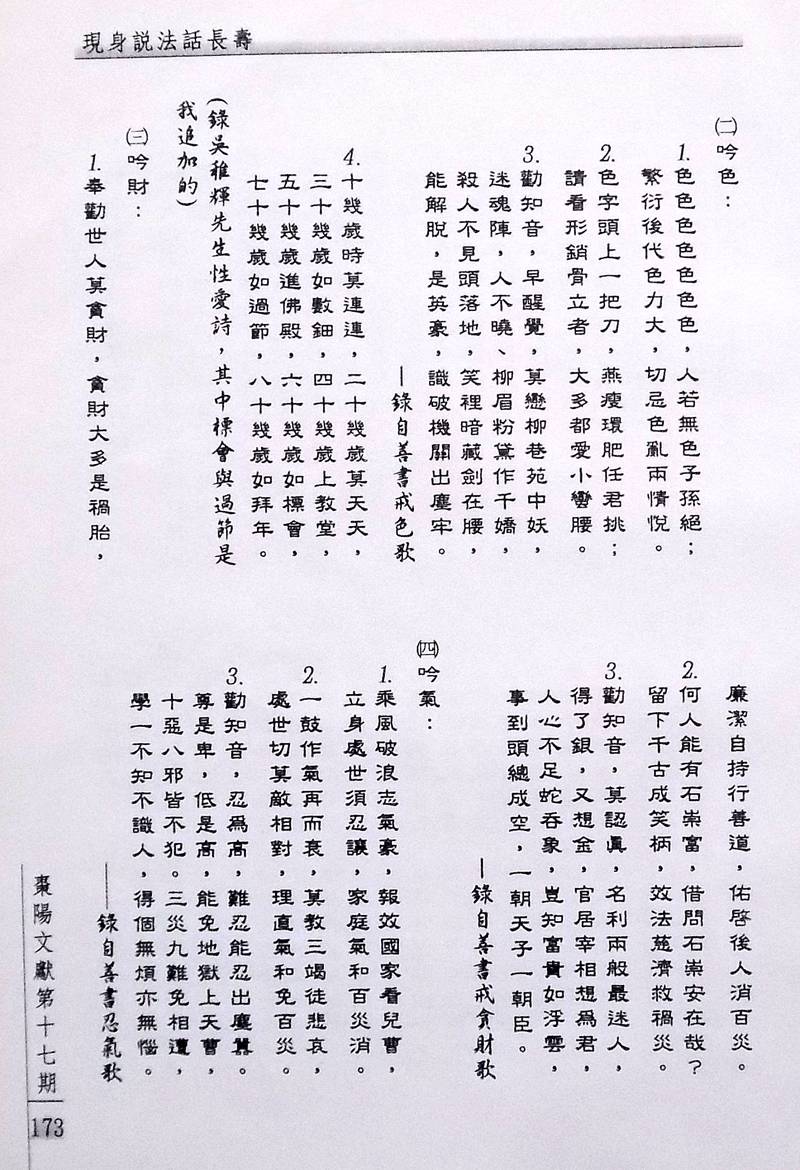 現身説法話長壽
㈡吟色：
1.色色色色色色色，人若無色子孫絕；
繁衍後代色力大，切忌色亂兩情悅。
2.色字頭上一把刀，燕瘦環肥任君挑；
請看形銷骨立者，大多都愛小蠻腰。
3.勸知音，早醒覺，莫戀柳巷苑中妖，
迷魂陣，人不曉、柳眉粉黛作千嬌，
殺人不見頭落地，笑裡暗藏劍在腰，
能解脫，是英豪，識破機關出塵牢。
—錄自善書戒色歌
4.十幾歲時莫連連，二十幾歲莫天天，
三十幾歲如數鈿，四十幾歲上教堂，
五十幾歲進佛殿，六十幾歲如標會，
七十幾歲如過節，八十幾歲如拜年。
(錄吳稚輝先生性愛詩，其中標會與過節是
我追加的)
㈢吟財：
1.奉勸世人莫貪財，貪財大多是禍胎，
廉潔自持行善道，佑啓後人消百災。
2.何人能有石崇富，借問石崇安在哉？
留下千古成笑柄，效法慈濟救禍災。
3.勸知音，莫認眞，名利兩般最迷人，
得了銀，又想金，官居宰相想爲君，
人心不足蛇吞象，豈知富貴如浮雲，
事到頭總成空，一朝天子一朝臣。
—錄自善書戒貪財歌
㈣吟氣：
1.乘風破浪志氣豪，報效國家看兒曹，
立身處世須忍讓，家庭氣和百災消。
2.一鼓作氣再而衰，莫教三竭徒悲哀，
處世切莫敵相對，理直氣和免百災。
3.勸知音，忍爲高，難忍能忍出塵囂，
尊是卑，低是高，能免地獄上天曹，
十惡八邪皆不犯。三災九難免相遭，
學一不知不識人，得個無煩亦無惱。
—錄自善書忍氣歌
棗陽文獻第十七期
173